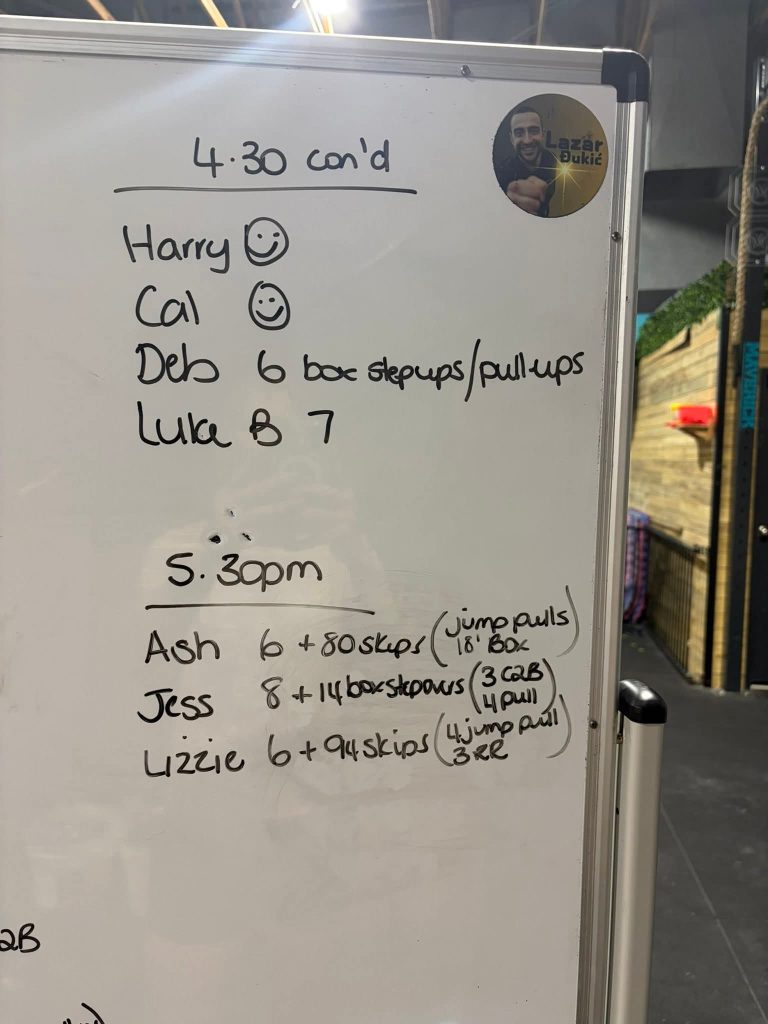 4.30 con'd
Lazar
Đukić
Harry
Cal
Deb 6 box stepups/pull-ups
Luke B 7
5.30pm
Ash 6 + 80 skips (jump pulls 18' BOX)
Jess 8 + 14 box stepovers (3 C2B 4 pull)
Lizzie 6 + 94 skips (4 jump pull 3 RR)
2B
MAVERICK